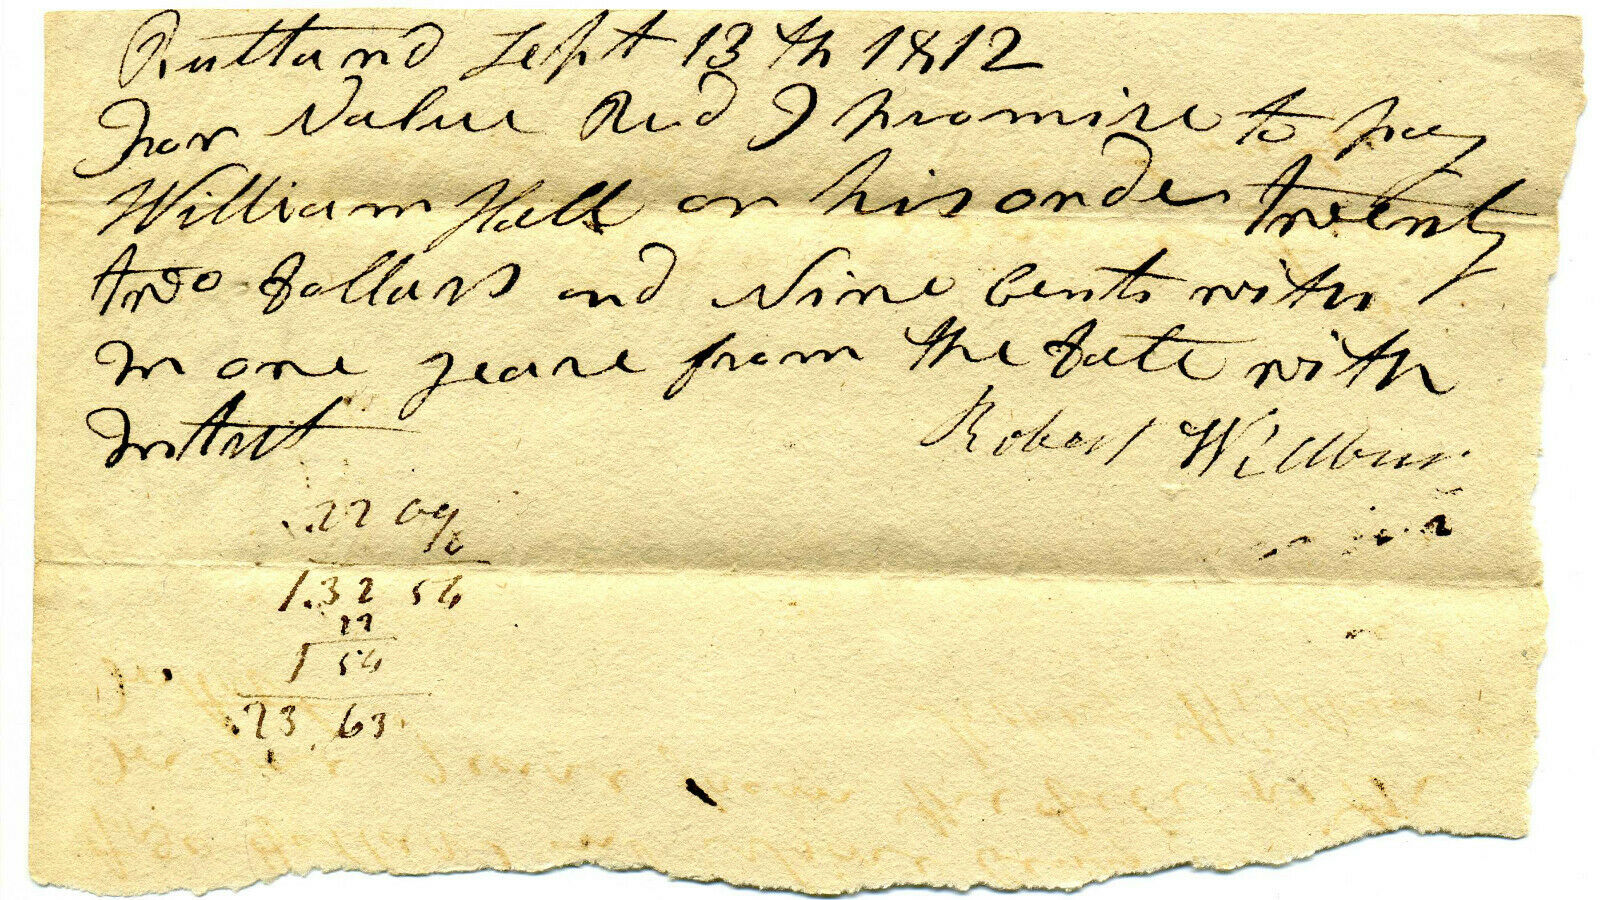 Rutland Sept 13th 1812
For Value Recd I promise to pay
William Hall or his order twenty
two dollars and Nine Cents with
in one yeare from the date with
Intrest
Robert Wilbur
.22 09
6
1.32 54
22
1 54
.23 63